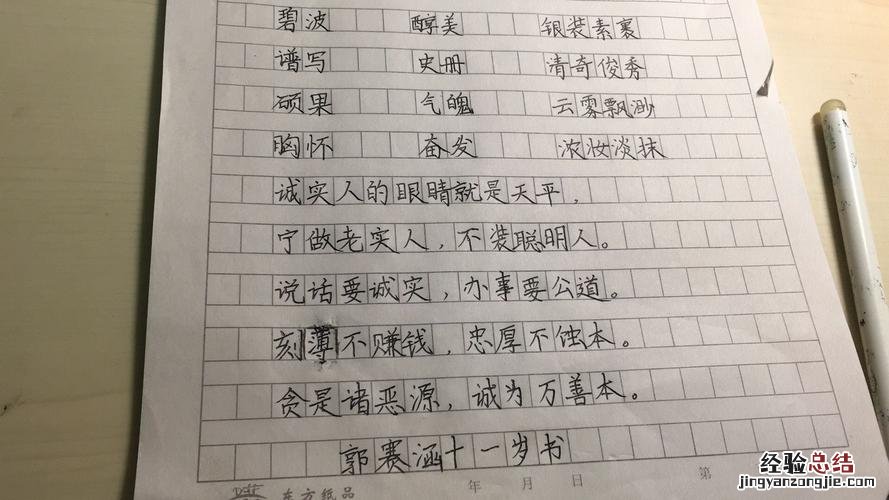 碧波 醇美 银装素裹
谱写 史册 清奇俊秀
硕果 气魄 云雾飘渺
胸怀 奋发 浓妆淡抹
诚实人的眼睛就是天平，
宁做老实人，不装聪明人。
说话要诚实，办事要公道。
刻薄不赚钱，忠厚不蚀本。
贪是诸恶源，诚为万善本。
郭赛涵十一岁书
东方纸品 年 月 日 第
经验总结
jingyanzongjie.com